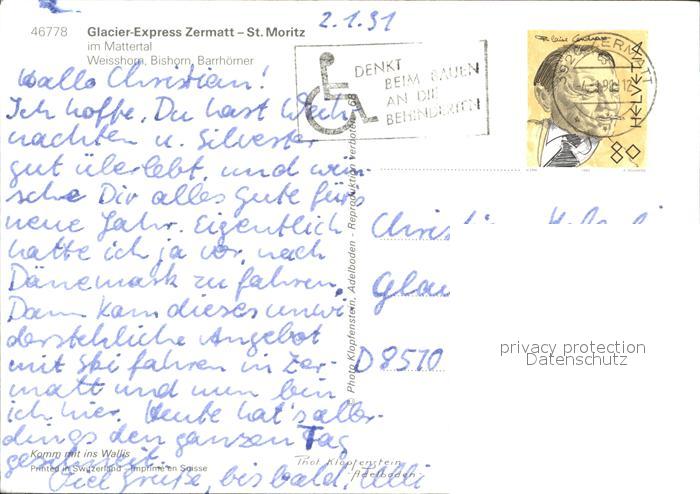 2.1.91
46778 Glacier-Express Zermatt – St. Moritz
im Mattertal
Weisshorn, Bishorn, Barrhörner
DENKT
BEIM BAUEN
AN DIE
BEHINDERTEN
ZERMATT
HELVETIA
80
Hallo Christian!
Ich hoffe, Du hast Weih-
nachten u. Silvester
gut überlebt, und wün-
sche Dir alles Gute fürs
neue Jahr. Eigentlich
hatte ich ja vor, nach
Dänemark zu fahren.
Dann kam dieses unwi
derstehliche Angebot
mit Ski fahren in Zer-
matt und nun bin
ich hier. Heute hat's aller-
dings den ganzen Tag
geschneit.
Viel Grüße, bis bald, Uli
Christian
Glau
D 8510
© Photo Klopfenstein, Adelboden - Reproduktion verboten
privacy protection
Datenschutz
Komm mit ins Wallis
Printed in Switzerland – Imprimé en Suisse
Phot Klopfenstein
Adelboden